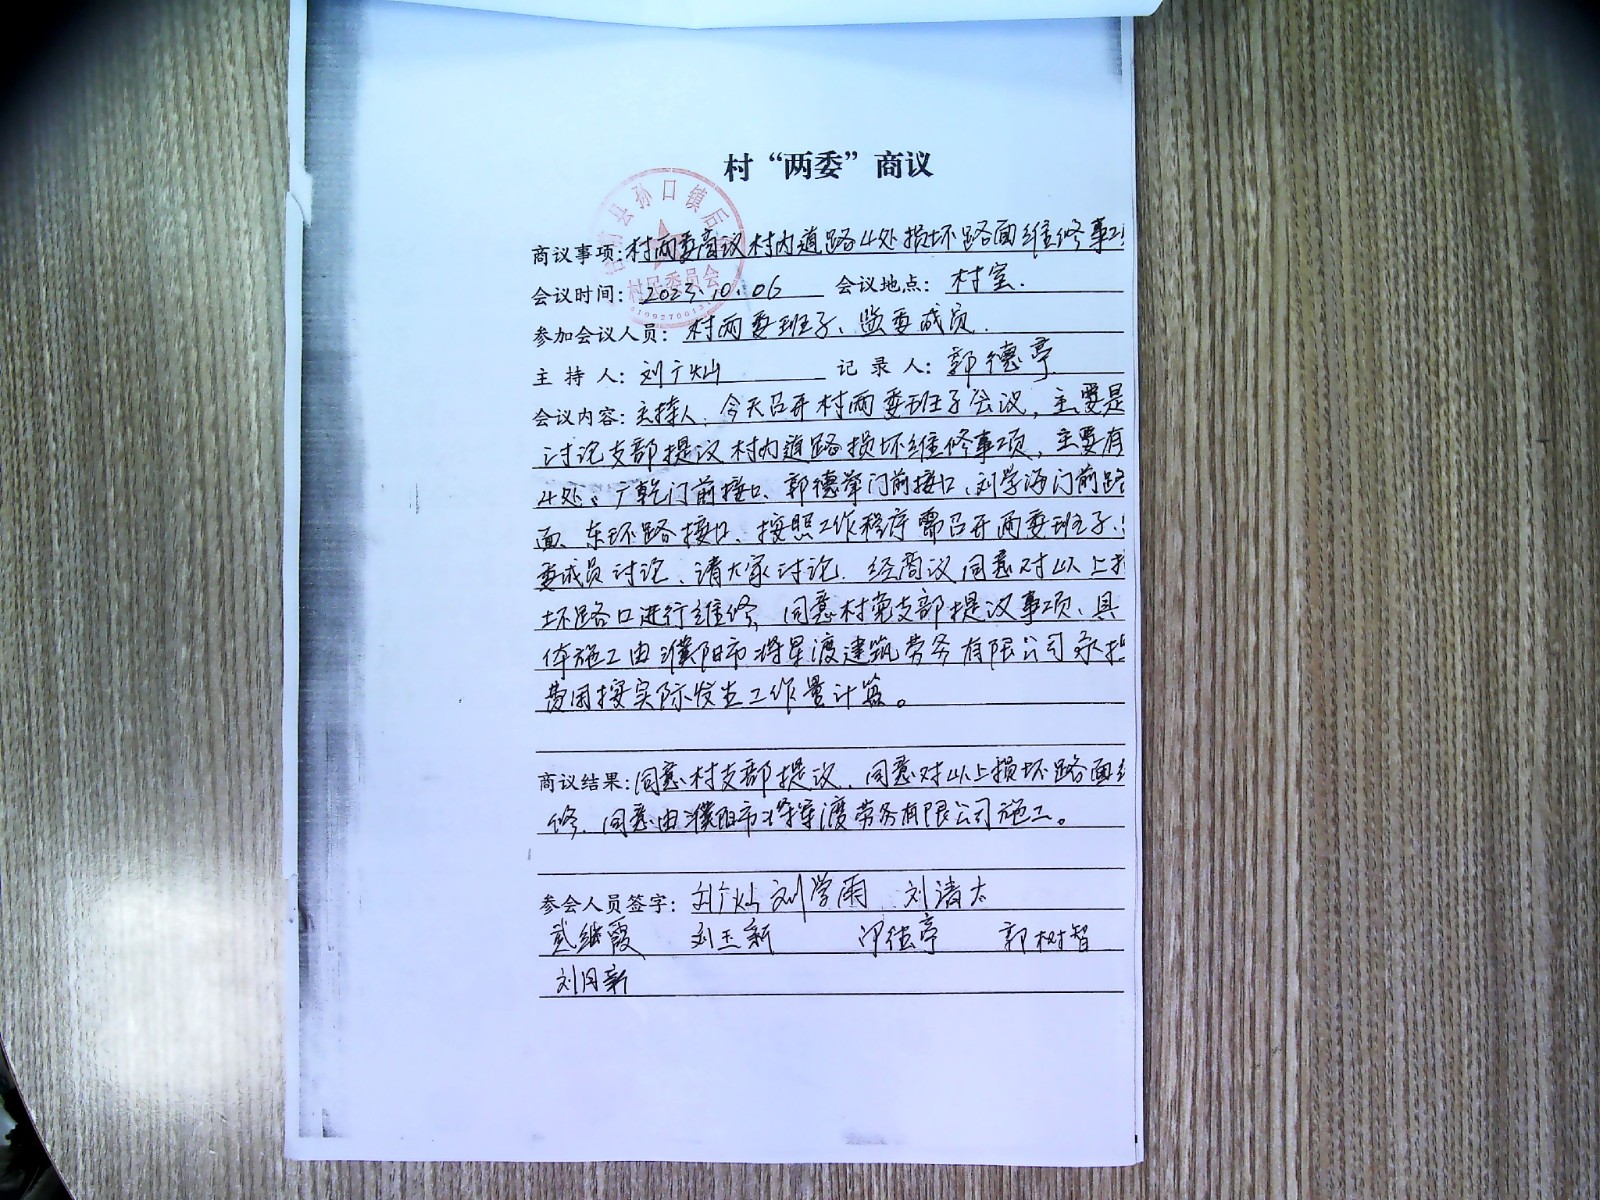 村“两委”商议
商议事项:村两委商议村内道路4处损坏路面维修事
会议时间:2023.10.06 会议地点:村室.
参加会议人员:村两委班子、监委成员.
主 持 人:刘广灿 记 录 人:郭德亭
会议内容:主持人:今天召开村两委班子会议,主要是
讨论支部提议村内道路损坏维修事项,主要有
4处:广乾门前接口、郭德举门前接口、刘学海门前路
面、东环路接口、按照工作程序需召开两委班子、
委成员讨论、请大家讨论.经商议同意对以上
坏路口进行维修,同意村党支部提议事项、具
体施工由濮阳市将星渡建筑劳务有限公司承
费用按实际发生工作量计算。
商议结果:同意村支部提议、同意对以上损坏路面
修、同意由濮阳市将军渡劳务有限公司施工。
参会人员签字:刘广灿 刘学雨 刘清太
武继霞 刘玉新 郭德亭 郭树智
刘月新
县孙口镇后
村民委员会